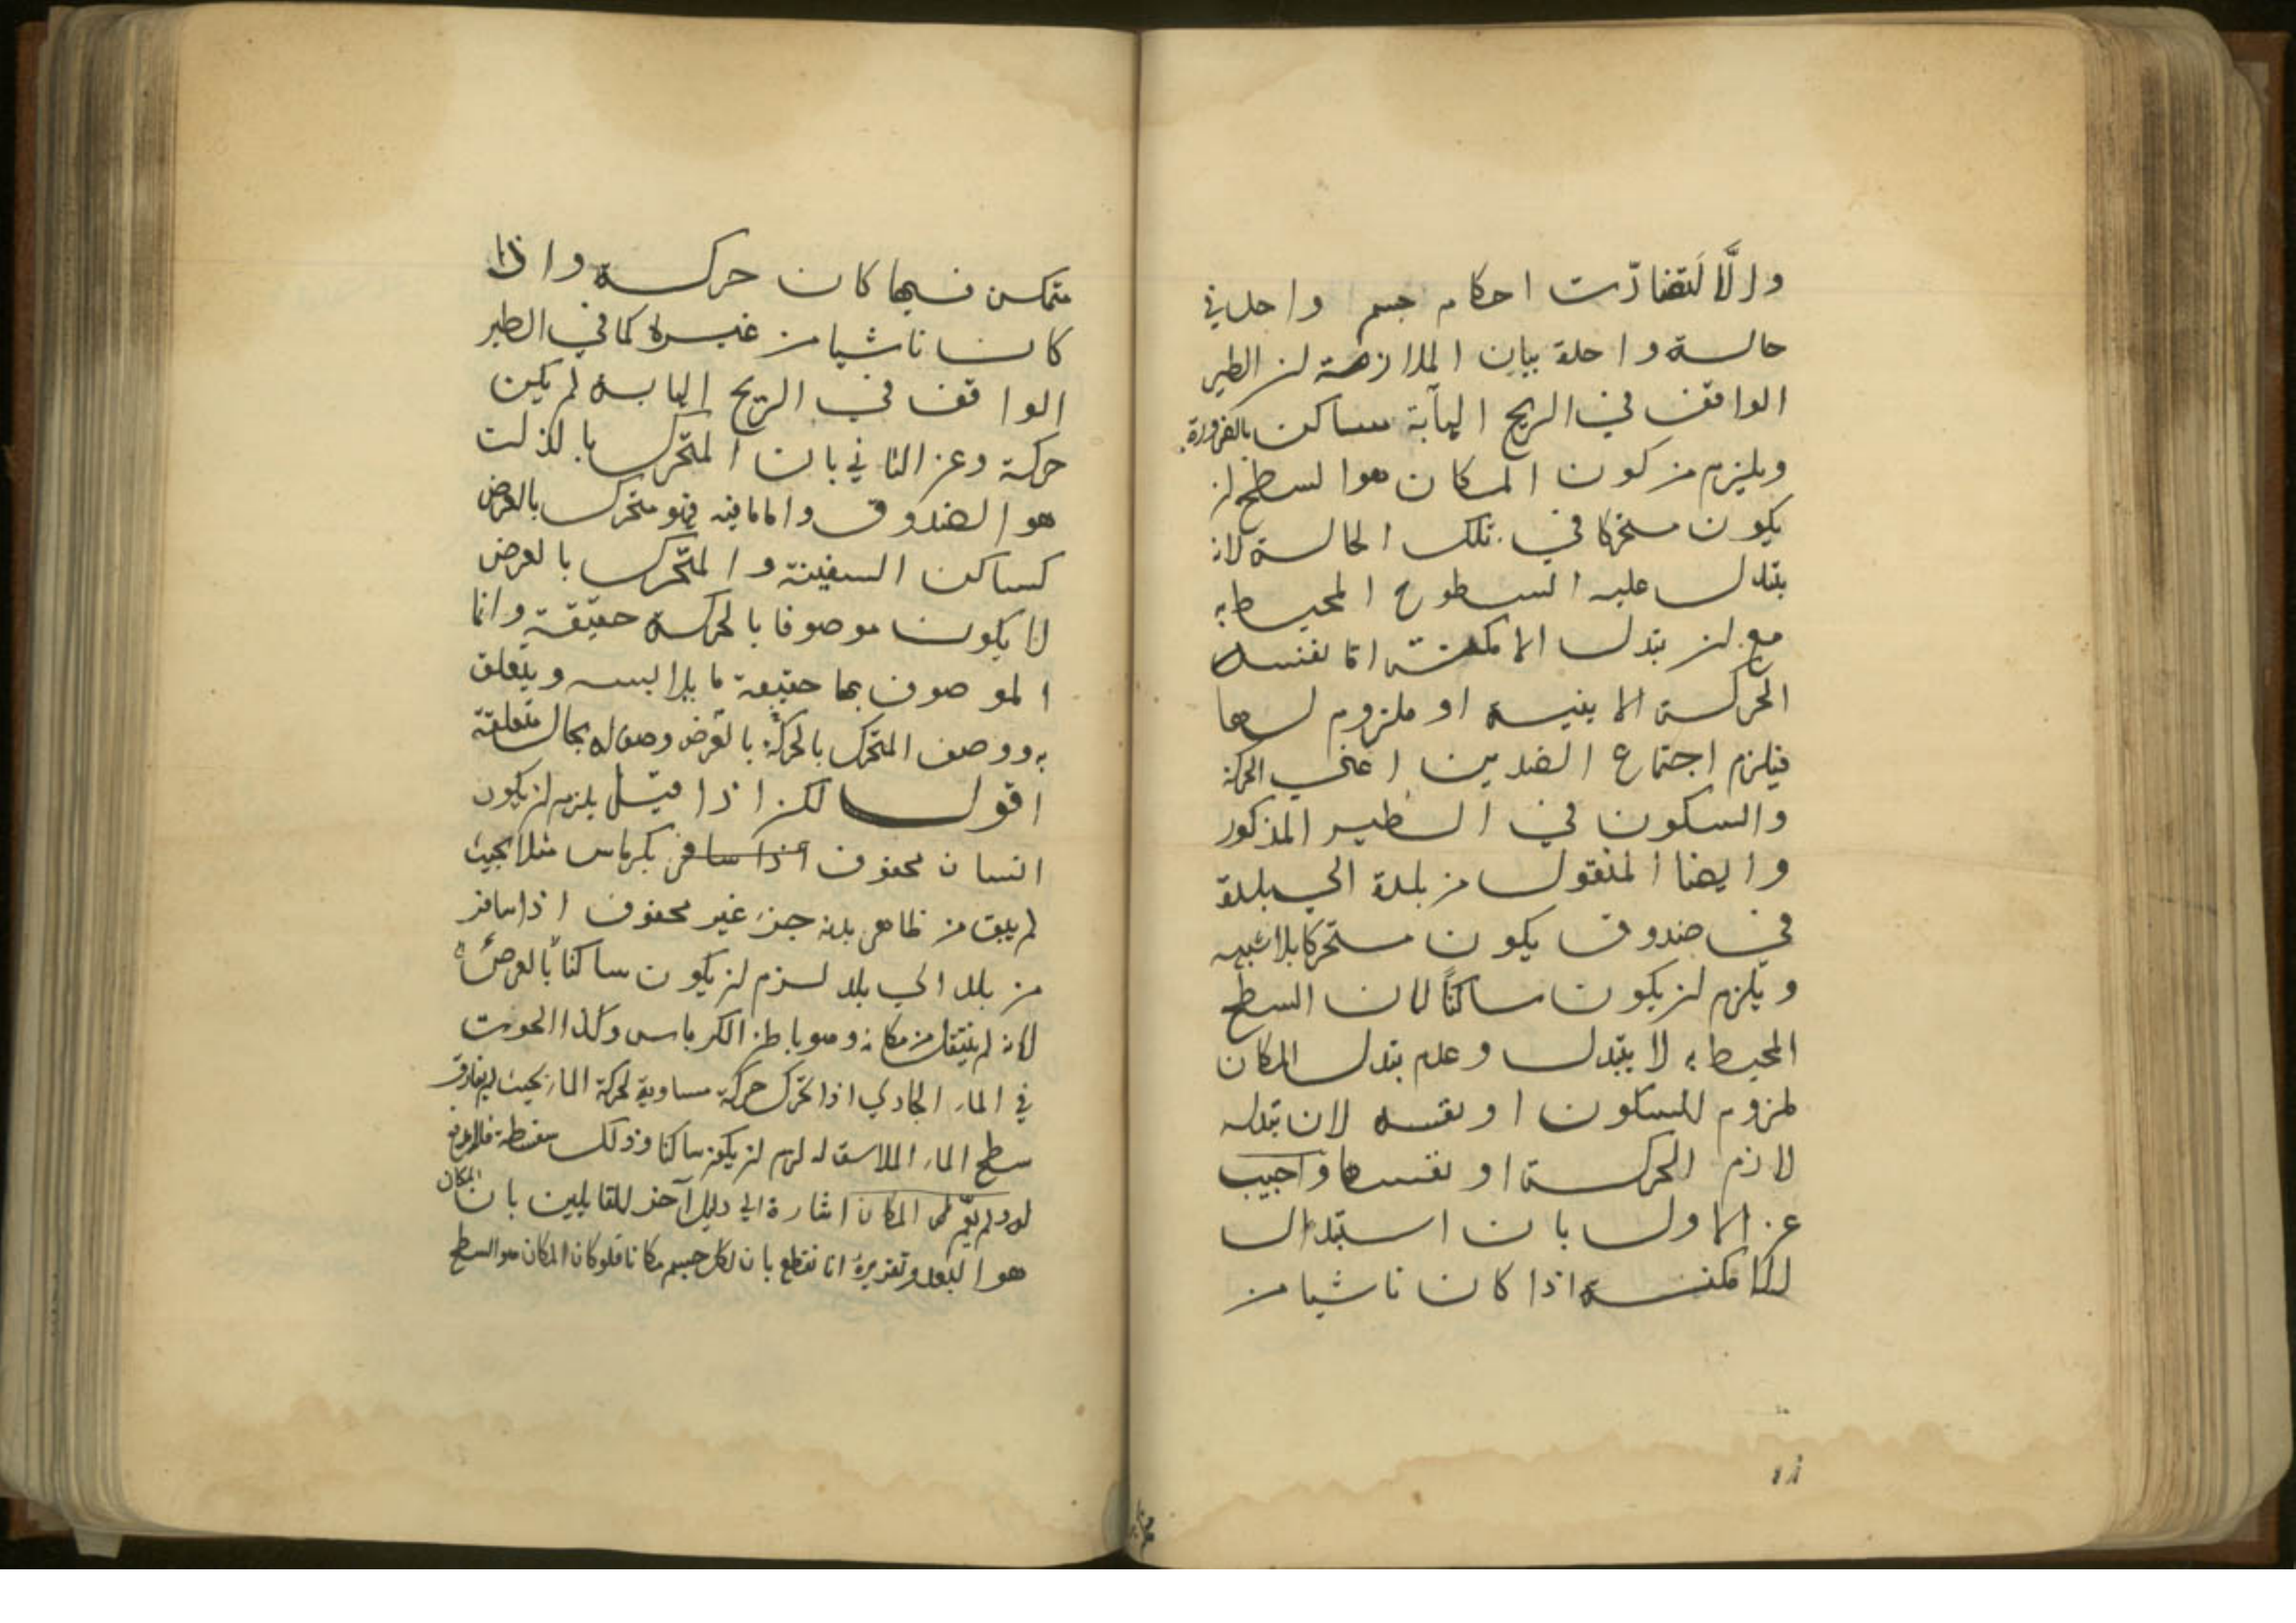 والَّا لَتضادّت احكام جسم واحد في
حالة واحدة بيان الملازمة ان الطير
الواقف في الريح الهابّة ساكن بالضرورة
ويلزم من كون المكان هو السطح ان
يكون متحركا في تلك الحالة لانه
يتبدل عليه السطوح المحيطة به
مع ان تبدل الامكنة اما نفس
الحركة الاينية او ملزوم لها
فيلزم اجتماع الضدين اعني الحركة
والسكون في الطير المذكور
وايضا المنقول من بلدة الى بلدة
في صندوق يكون متحركا بلا شبهة
ويلزم ان يكون ساكنًا لان السطح
المحيط به لا يتبدل وعدم تبدل المكان
ملزوم للسكون او نفسه لان تبدله
لازم الحركة او نفسها واجيب
عن الاول بان استبدال
الامكنة اذا كان ناشيا من
متمكن فيها كان حركة واذا
كان ناشيا من غيره كما في الطير
الواقف في الريح الهابة لم يكن
حركة وعن الثاني بان المتحرك بالذات
هو الصندوق واما ما فيه فهو متحرك بالعرض
كساكن السفينة والمتحرك بالعرض
لا يكون موصوفا بالحركة حقيقة وانما
الموصوف بها حقيقة ما يلابسه ويتعلق
به ووصف المتحرك بالحركة بالعرض وصف له بحال متعلقه
اقول لكن اذا قيل يلزم ان يكون
انسان محفوف اذا سافر بكرباس مثلا بحيث
لم يبق من ظاهر بدنه جزء غير محفوف اذا سافر
من بلد الى بلد لزم ان يكون ساكنا بالعرض
لانه لم ينتقل من مكانه وهو باطن الكرباس وكذا الحوت
في الماء الجاري اذا تحرك حركة مساوية لحركة الماء بحيث لم يفارق
سطح الماء الملاسق له لزم ان يكون ساكنا وذلك سفسطة
قوله ولم يعم المكان اشارة الى دليل آخر للقايلين بان المكان
هو البعد وتقريره انا نقطع بان لكل جسم مكانا فلو كان المكان هو السطح